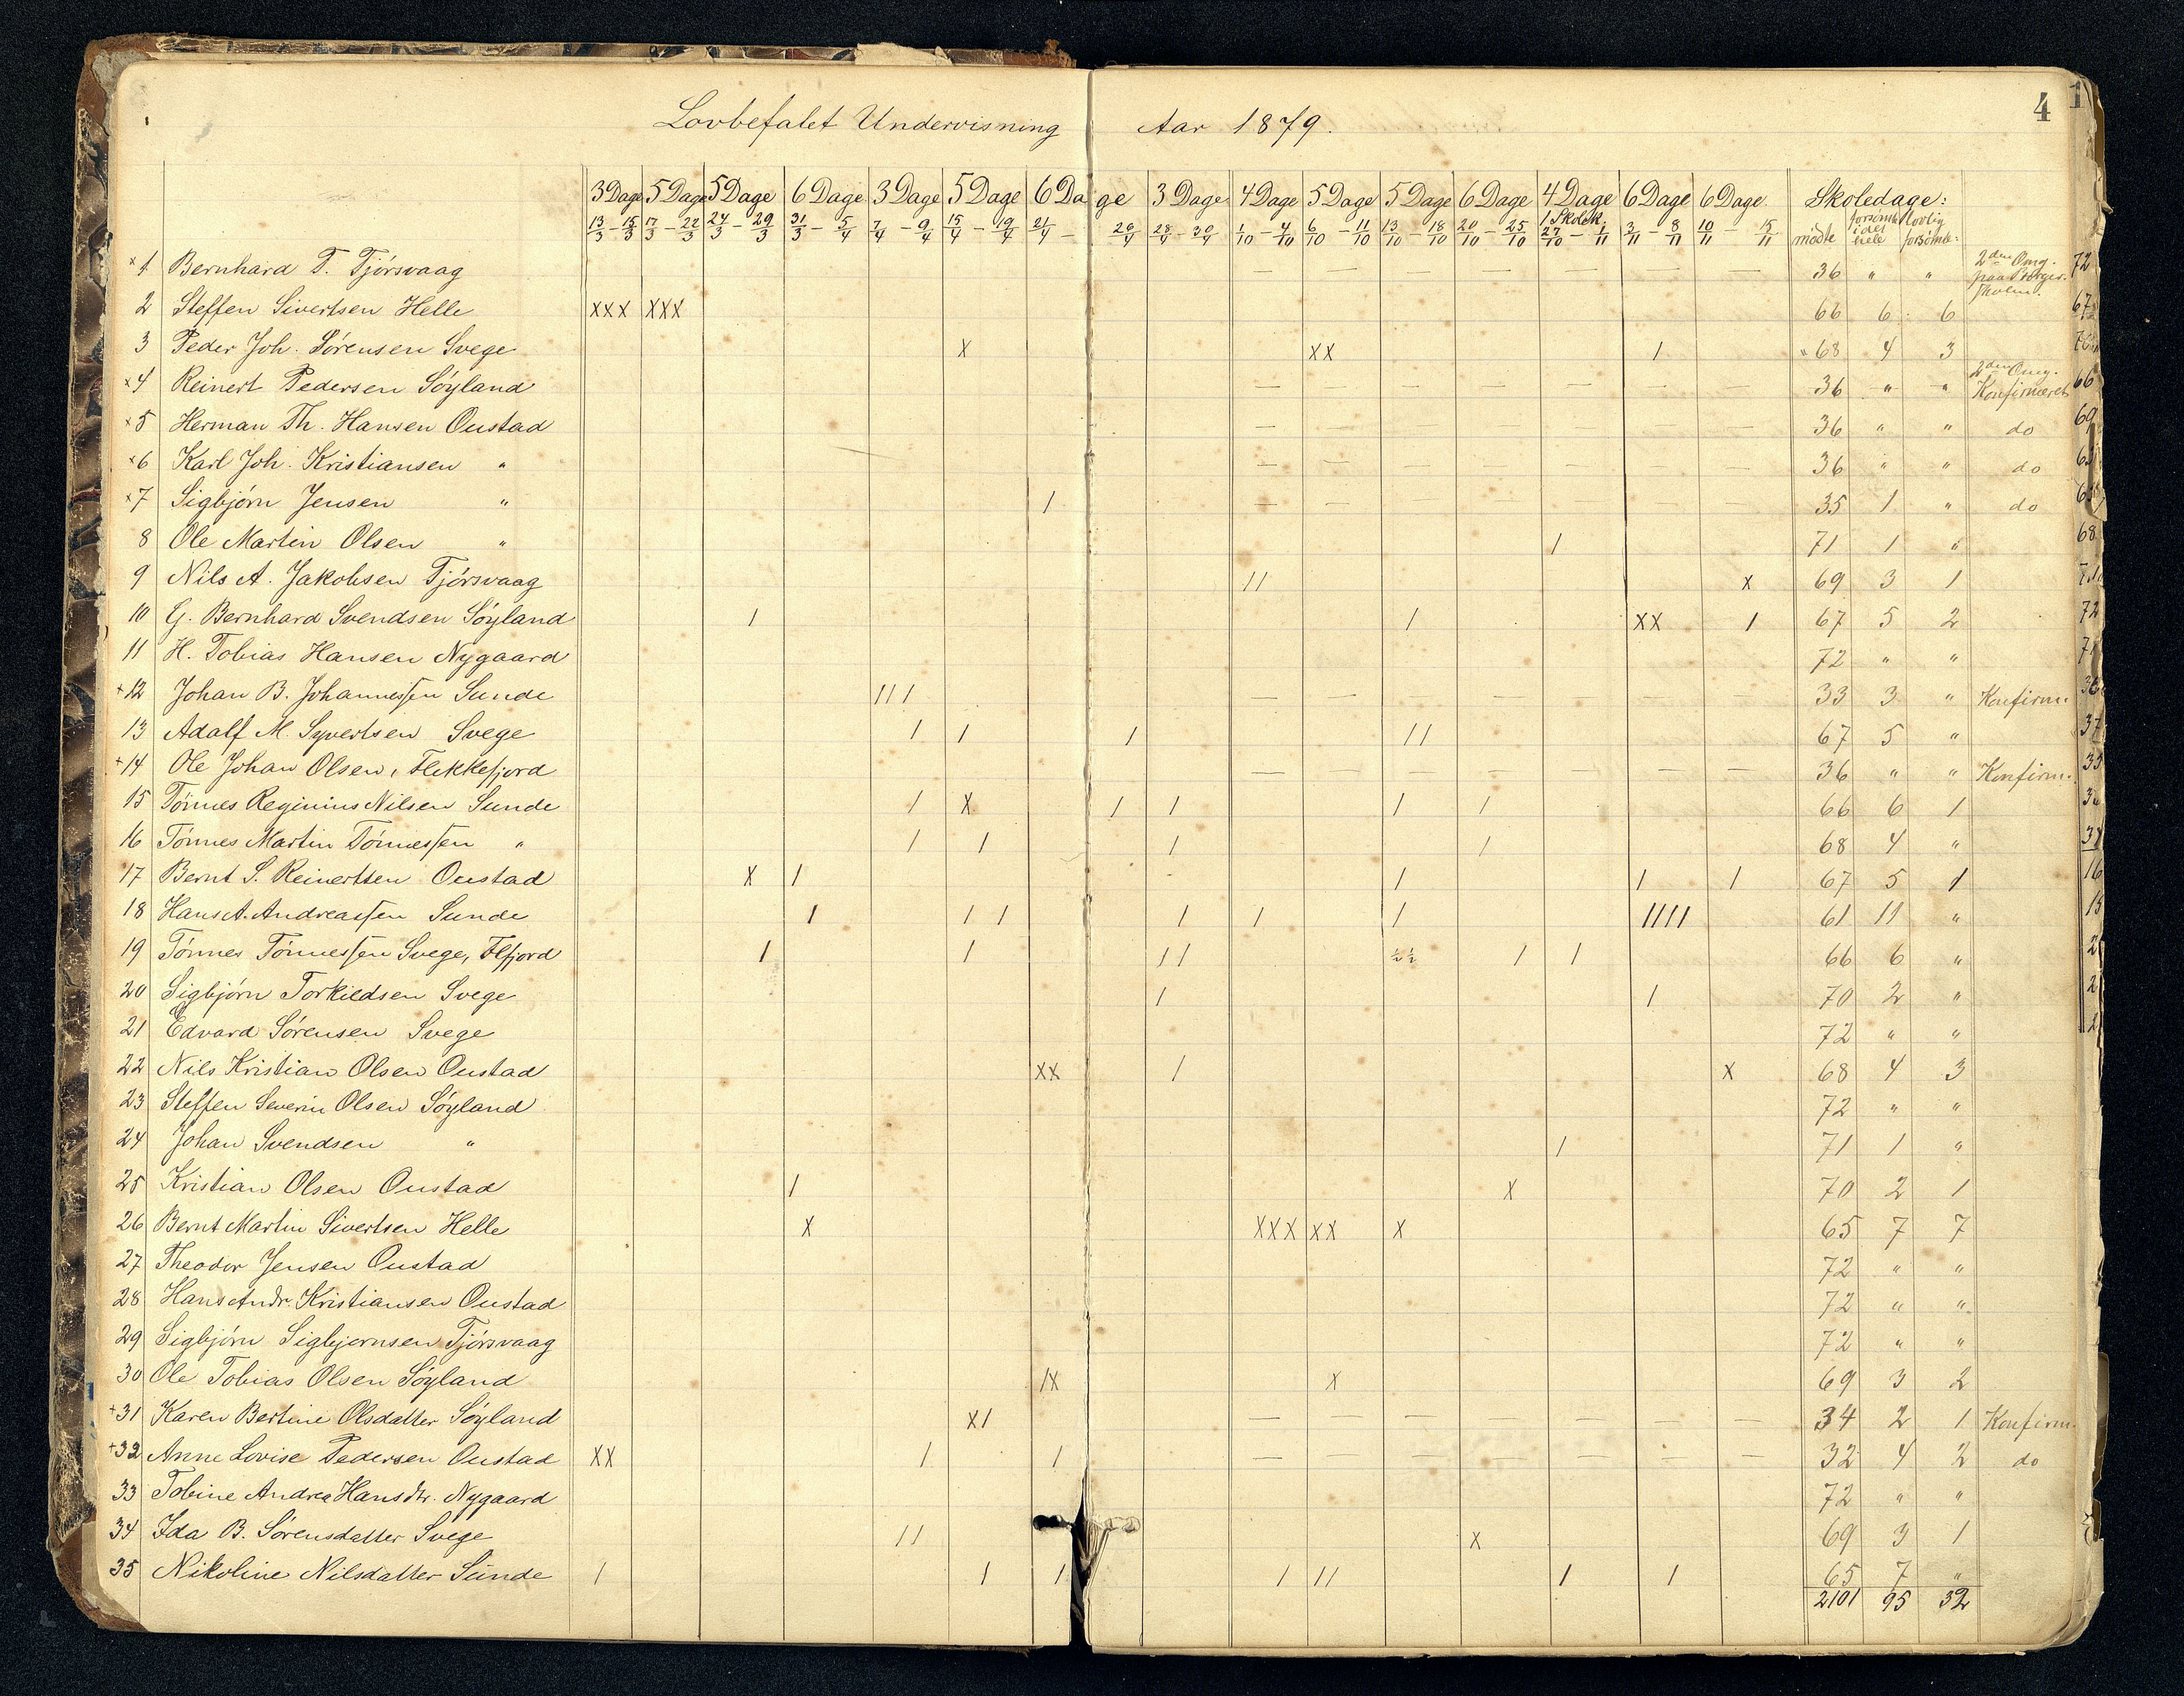 Lovbefalet Undervisning Aar 1879. 4
3 Dage 5 Dage 5 Dage 6 Dage 3 Dage 5 Dage 6 Dage 3 Dage 4 Dage 5 Dage 5 Dage 6 Dage 4 Dage 6 Dage 6 Dage. Skoledage:
13/3 – 15/3 17/3 – 22/3 24/3 – 29/3 31/3 – 5/4 7/4 – 9/4 15/4 – 19/4 21/4 – 26/4 28/4 – 30/4 1/10 – 4/10 6/10 – 11/10 13/10 – 18/10 20/10 – 25/10 1 Skolek. 27/10 – 1/11 3/11 – 8/11 10/11 – 15/11 mødte forsømte i det hele Ulovlig forsømte:
×1 Bernhard T. Tjörsvaag — — — — — — — 36 " " 2den Omg. paa Borger-skolen. 72
2 Steffen Sivertsen Helle XXX XXX 66 6 6 67
3 Peder Joh. Sörensen Svege X XX 1 68 4 3
×4 Reinert Pedersen Söyland — — — — — — — 36 " " 2den Omg. Konfirmeret 66
×5 Herman Th. Hansen Oustad — — — — — — — 36 " " do 69
×6 Karl Joh. Kristiansen " — — — — — — — 36 " " do
×7 Sigbjörn Jensen " 1 — — — — — — — 35 1 " do
8 Ole Martin Olsen " 1 71 1 " 68
9 Nils A. Jakobsen Tjörsvaag 11 X 69 3 1
10 G. Bernhard Svendsen Söyland 1 1 XX 1 67 5 2 72
11 H. Tobias Hansen Nygaard 72 " "
+12 Johan B. Johannessen Sunde 111 — — — — — — — 33 3 " Konfirm.
13 Adolf M. Syvertsen Svege 1 1 1 11 67 5 " 37
+14 Ole Johan Olsen, Flekkefjord — — — — — — — 36 " " Konfirm.
15 Tönnes Reginius Nilsen Sunde 1 X 1 1 1 1 66 6 1
16 Tönnes Martin Tönnessen " 1 1 1 1 68 4 "
17 Bernt S. Reinertsen Oustad X 1 1 1 1 67 5 1 16
18 Hans A. Andreassen Sunde 1 1 1 1 1 1 1111 61 11 " 15
19 Tönnes Tönnessen Svege, Flfjord 1 1 11 ½ ½ 1 1 66 6 "
20 Sigbjörn Torkildsen Svege 1 1 70 2 "
21 Edvard Sörensen Svege 72 " "
22 Nils Kristian Olsen Oustad XX 1 X 68 4 3
23 Steffen Severin Olsen Söyland 72 " "
24 Johan Svendsen " 1 71 1 "
25 Kristian Olsen Oustad 1 X 70 2 1
26 Bernt Martin Sivertsen Helle X XXX XX X 65 7 7
27 Theodor Jensen Oustad 72 " "
28 Hans Andr. Kristiansen Oustad 72 " "
29 Sigbjörn Sigbjörnsen Tjörsvaag 72 " "
30 Ole Tobias Olsen Söyland 1X X 69 3 2
+31 Karen Bertine Olsdatter Söyland X1 — — — — — — — 34 2 1 Konfirm.
+32 Anne Lovise Pedersen Oustad XX 1 1 — — — — — — — 32 4 2 do
33 Tobine Andrea Hansdtr. Nygaard 72 " "
34 Ida B. Sörensdatter Svege 11 X 69 3 1
35 Nikoline Nilsdatter Sunde 1 1 1 1 11 1 1 65 7 "
2101 95 32